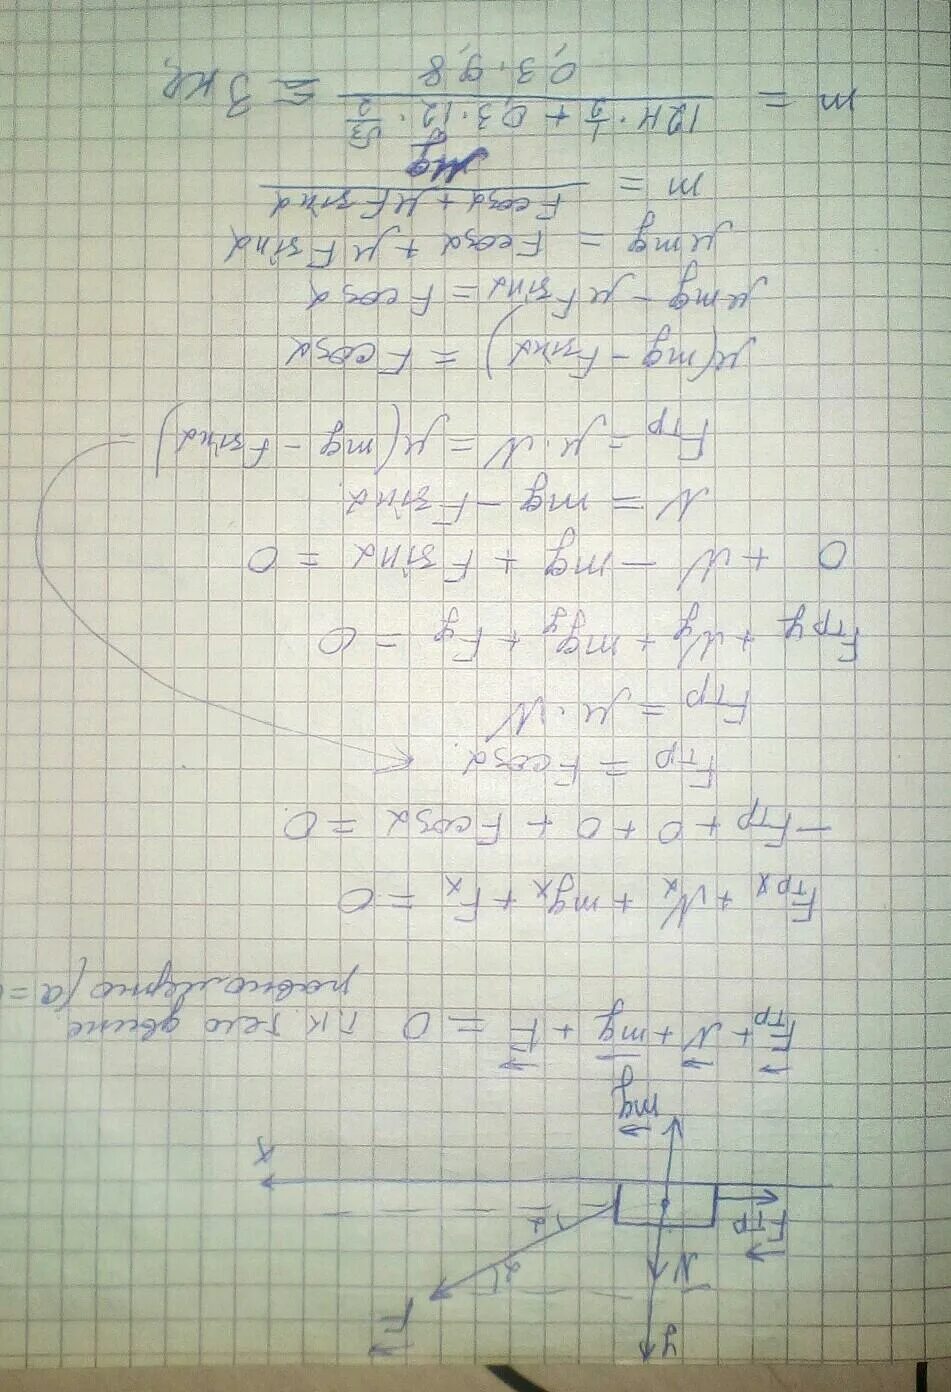 y
F
N
α
α
Fтр
x
mg
Fтр + N + mg + F = 0 т.к тело движ.
равномерно (a=0
Fтрx + Nx + mgx + Fx = 0
-Fтр + 0 + 0 + Fcosα = 0
Fтр = Fcosα.
Fтр = μ·N
Fтрy + Ny + mgy + Fy = 0
0 + N - mg + Fsinα = 0
N = mg - Fsinα.
Fтр = μ·N = μ(mg - Fsinα)
μ(mg - Fsinα) = Fcosα
μmg - μFsinα = Fcosα
μmg = Fcosα + μFsinα
m = (Fcosα + μFsinα) / μg
m = (12Н·1/2 + 0,3·12·√3/2) / (0,3·9,8) = 3кг,